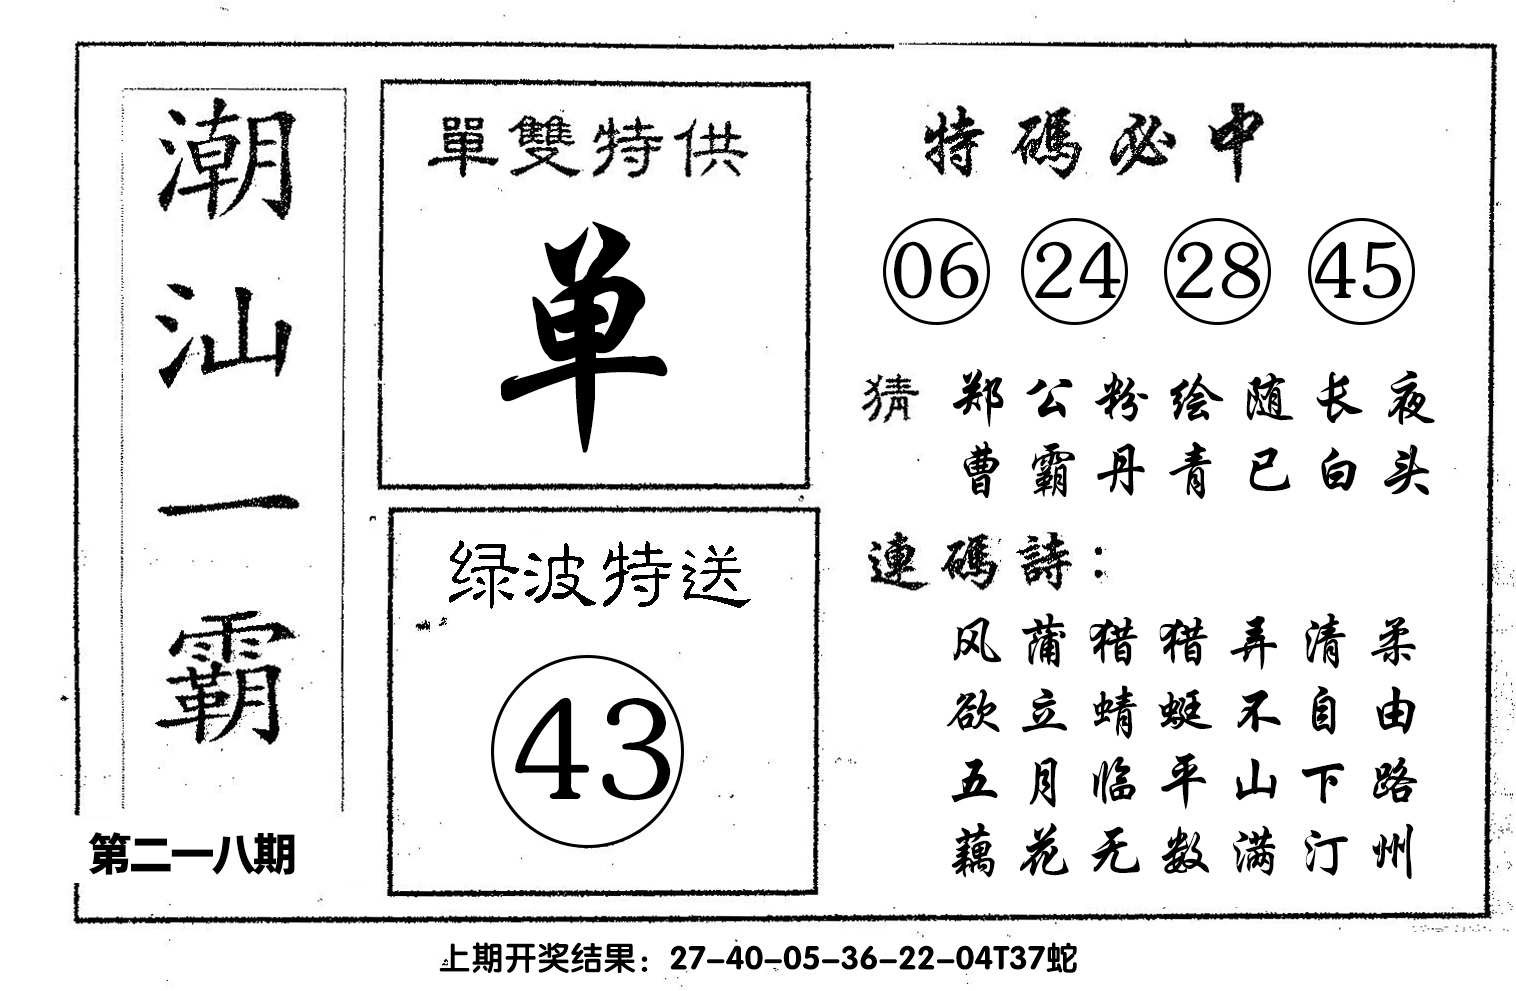 潮汕一霸
第二一八期
單雙特供
单
绿波特送
43
特碼必中
06 24 28 45
猜 郑公粉绘随长夜
曹霸丹青已白头
連碼詩：
风蒲猎猎弄清柔
欲立蜻蜓不自由
五月临平山下路
藕花无数满汀州
上期开奖结果：27-40-05-36-22-04T37蛇